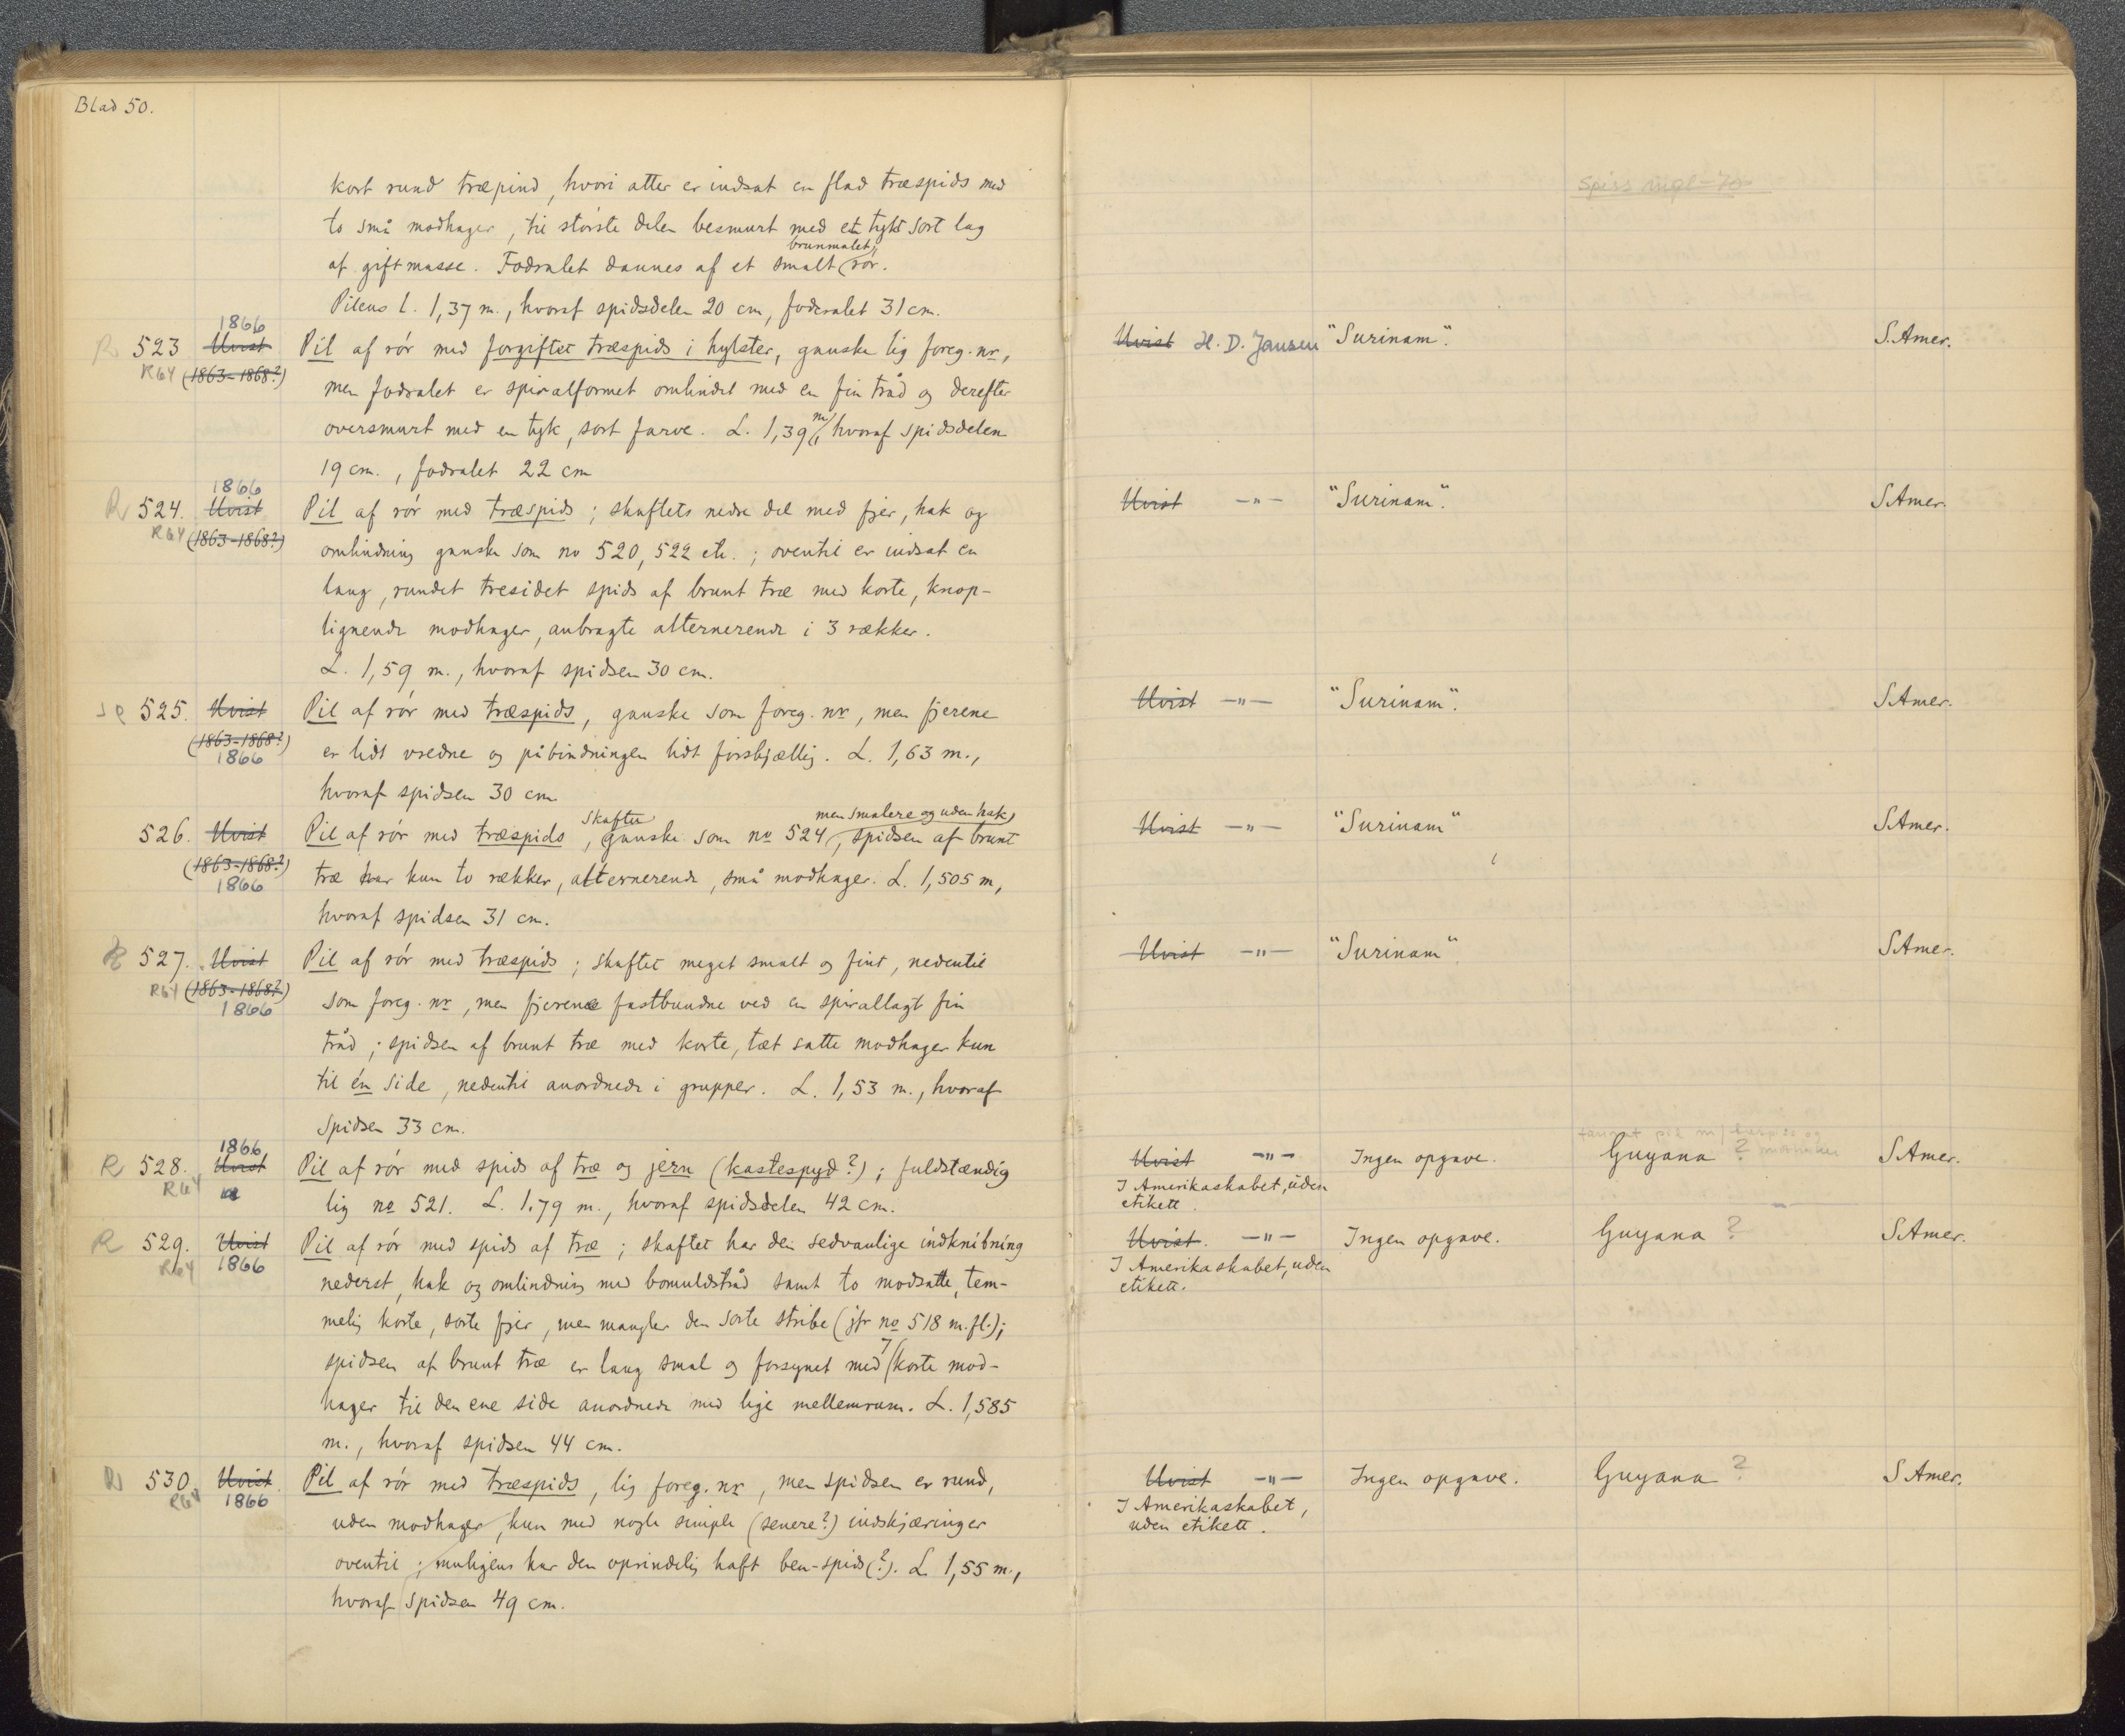 Blad 50.
kort rund træpind, hvori atter er indsat en flad træspids med
to små modhager, til største delen besmurt med et tykt sort lag
af giftmasse. Fodralet dannes af et smalt brunmalet rör.
Pilens l. 1,37 m., hvoraf spidsdelen 20 cm, foderalet 31 cm.
R 523 1866 Uvist Pil af rör med forgiftet træspids i hylster, ganske lig foreg. nr, Uvist H. D. Jansen "Surinam". S. Amer.
R64 (1863-1868?) men fodralet er spiralformet omlindet med en fin tråd og derefter
oversmurt med en tyk, sort farve. L. 1,39 m, hvoraf spidsdelen
19 cm., fodralet 22 cm
R 524. 1866 Uvist Pil af rör med træspids; skaftets nedre del med fjer, hak og Uvist -"- "Surinam". S. Amer.
R64 (1863-1868?) omlindning ganske som no 520, 522 etc.; oventil er indsat en
lang, rundet tresidet spids af brunt træ med korte, knop-
lignende modhager, anbragte alternerende i 3 rækker.
L. 1,59 m., hvoraf spidsen 30 cm.
525. Uvist Pil af rör med træspids, ganske som foreg. nr, men fjerene Uvist -"- "Surinam". S. Amer.
(1863-1868?) 1866 er lidt vredne og påbindningen lidt forskjællig. L. 1,63 m.,
hvoraf spidsen 30 cm
526. Uvist Pil af rör med træspids, skaftet ganske som no 524, men smalere og uden hak, spidsen af brunt Uvist -"- "Surinam" S. Amer.
(1863-1868?) 1866 træ har kun to rækker, alternerende, små modhager. L. 1,505 m,
hvoraf spidsen 31 cm.
R 527. Uvist Pil af rör med træspids; skaftet meget smalt og fint, nedentil Uvist -"- "Surinam" S. Amer.
R64 (1863-1868?) 1866 som foreg. nr, men fjerene fastbundne ved en spirallagt fin
tråd; spidsen af brunt træ med korte, tæt satte modhager kun
til én side, nedentil anordnede i grupper. L. 1,53 m., hvoraf
spidsen 33 cm.
R 528. 1866 Uvist Pil af rör med spids af træ og jern (kastespyd?); fuldstændig Uvist -"- Ingen opgave. Guyana ? S. Amer.
R64 lig no 521. L. 1.79 m., hvoraf spidsdelen 42 cm. I Amerikaskabet, uden
etikett.
R 529. Uvist Pil af rör med spids af træ; skaftet har den sedvanlige indknibning Uvist. -"- Ingen opgave. Guyana ? S. Amer.
R64 1866 nederst, hak og omlindning med bomuldstråd samt to modsatte, tem- I Amerikaskabet, uden
etikett.
melig korte, sorte fjer, men mangler den sorte stribe (jfr no 518 m.fl.);
spidsen af brunt træ er lang smal og forsynet med 7 korte mod-
hager til den ene side anordnede med lige mellemrum. L. 1,585
m., hvoraf spidsen 44 cm.
530. Uvist Pil af rör med træspids, lig foreg. nr, men spidsen er rund, Uvist -"- Ingen opgave. Guyana ? S. Amer.
R64 1866 uden modhager, kun med nogle simple (senere?) indskjæringer I Amerikaskabet,
uden etikett.
oventil; muligens har den oprindelig haft ben-spids(?). L 1,55 m.,
hvoraf spidsen 49 cm.